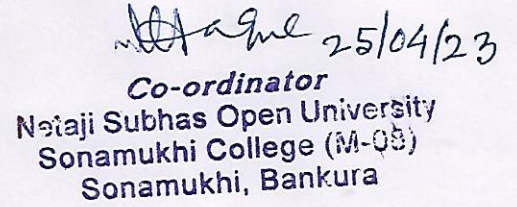 25/04/23
Co-ordinator
Netaji Subhas Open University
Sonamukhi College (M-08)
Sonamukhi, Bankura